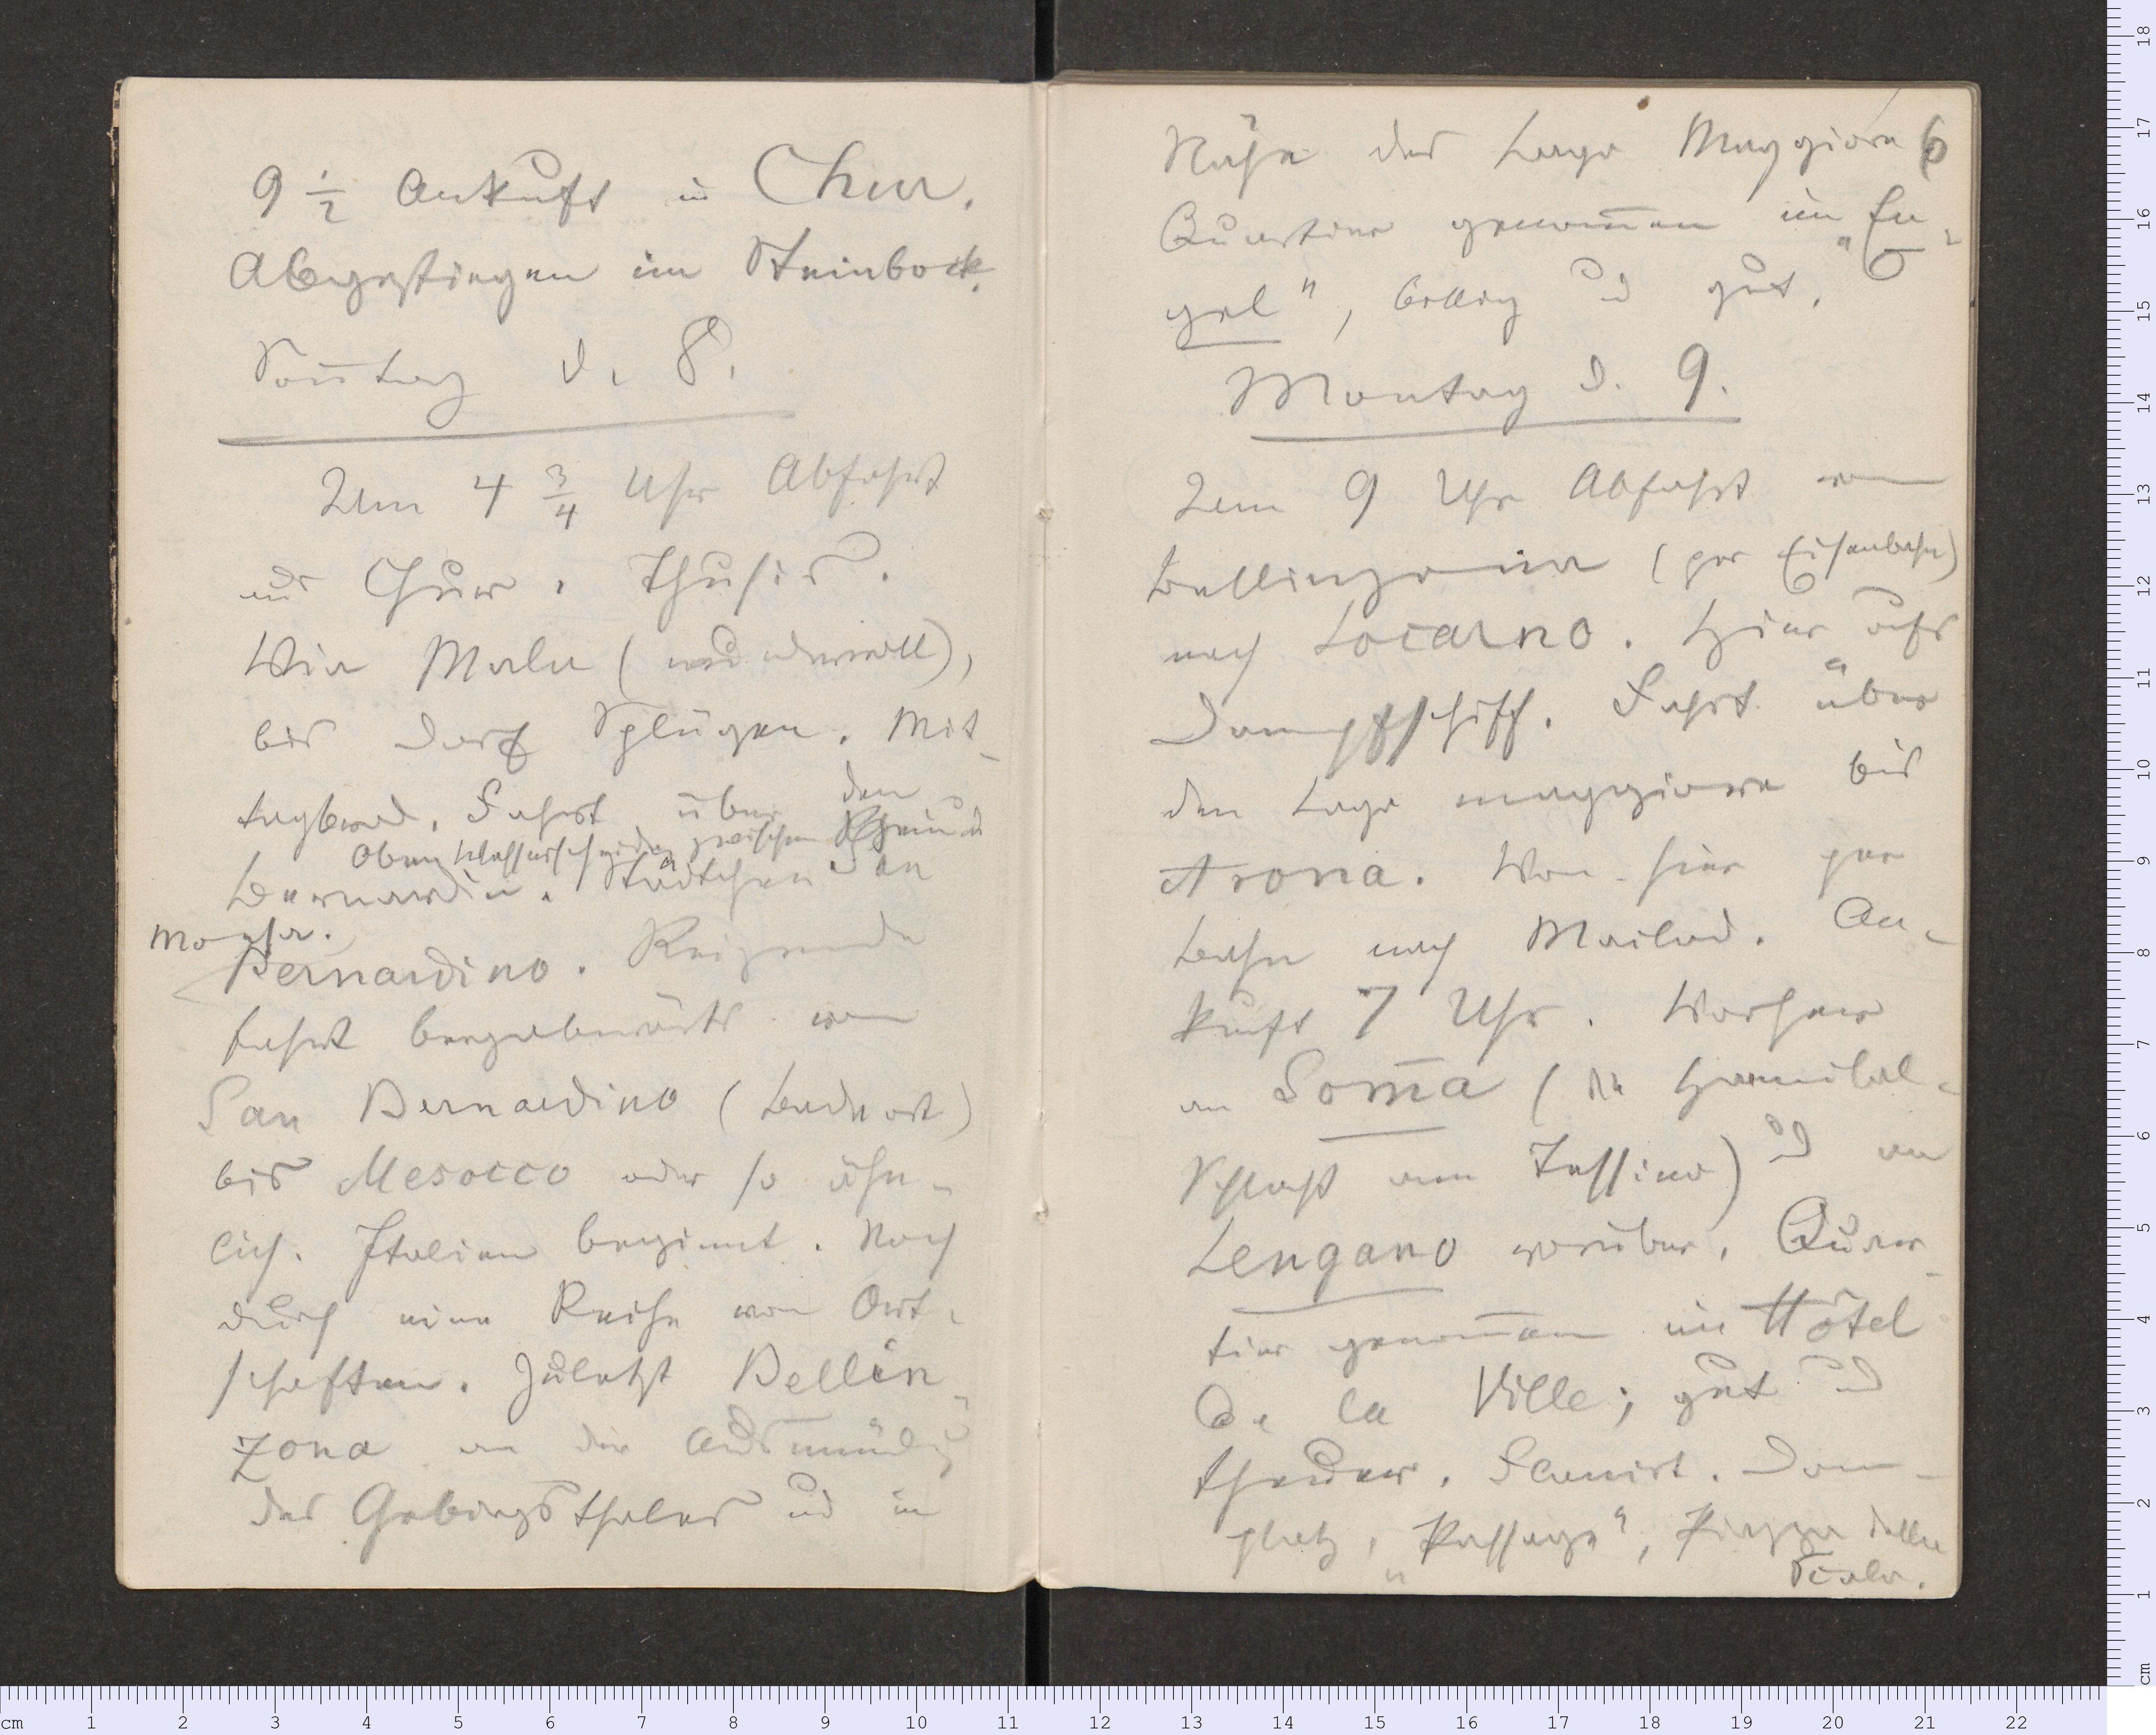 9 1/2 Ankuft in Chur.
Abgestiegen im Steinbock.
Soñtag d. 8.
Um 4 3/4 Uhr Abfahrt
aus Chur. Thusis.
Via Mala (wundervoll),
bis Dorf Splügen. Mit-
tagbrod. Fahrt über den
Oben Wasserscheide zwischen Rhein u
Bernardin. Städtchen San
Bernardino. Reizende
Fahrt bergabwärts von
San Bernardino (Badeort)
bis Mesocco oder so ähn-
lich. Italien beginnt. Noch
durch eine Reihe von Ort-
schaften. Zuletzt Bellin-
zona an der Ausmündg
des Gebirgsthales und in
Nähe des Lago Maggiore 6
Quartier genom̅en im „En-
gel", billig und gut.
Montag d. 9.
Um 9 Uhr Abfahrt von
Bellinzona (per Eisenbahn)
nach Locarno. Hier aufs
Dampfschiff. Fahrt über
den Lago maggiore bis
Arona. Von hier per
Bahn nach Mailand. An-
kunft 7 Uhr. Vorher
an Som̅a (die Hannibal-
Schlacht am Tessino) und an
Lengano vorüber. Quar-
tier genom̅en im Hôtel
de la Ville; gut und
theuer. Flanirt. Dom-
platz, „Passage", Piazza della
Scala.